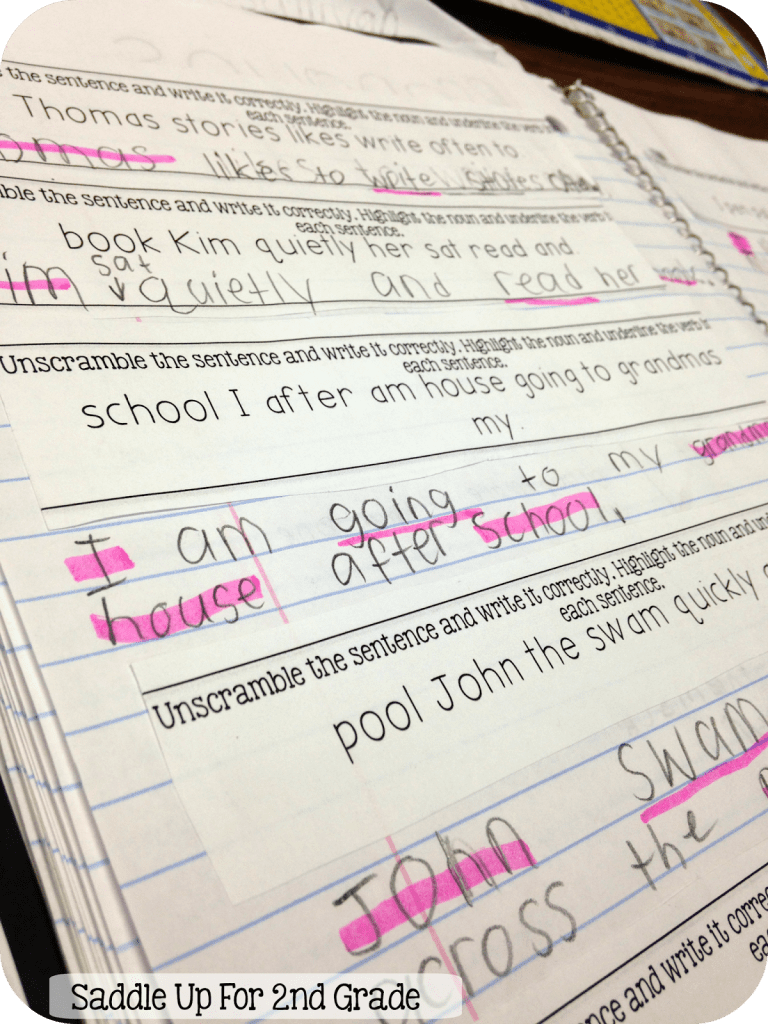 the sentence and write it correctly. Highlight the noun and underline the verb in
each sentence.
Thomas stories likes write often to.
omas likes to write stories
ble the sentence and write it correctly. Highlight the noun and underline the verb in
each sentence.
book Kim quietly her sat read and.
sat
im quietly and read her book.
Unscramble the sentence and write it correctly. Highlight the noun and underline the verb in
each sentence.
school I after am house going to grandmas
my.
I am going to my grandm
house after school.
Unscramble the sentence and write it correctly. Highlight the noun and und
each sentence.
pool John the swam quickly
John swam
across the
ence and write it corre
ea
Saddle Up For 2nd Grade